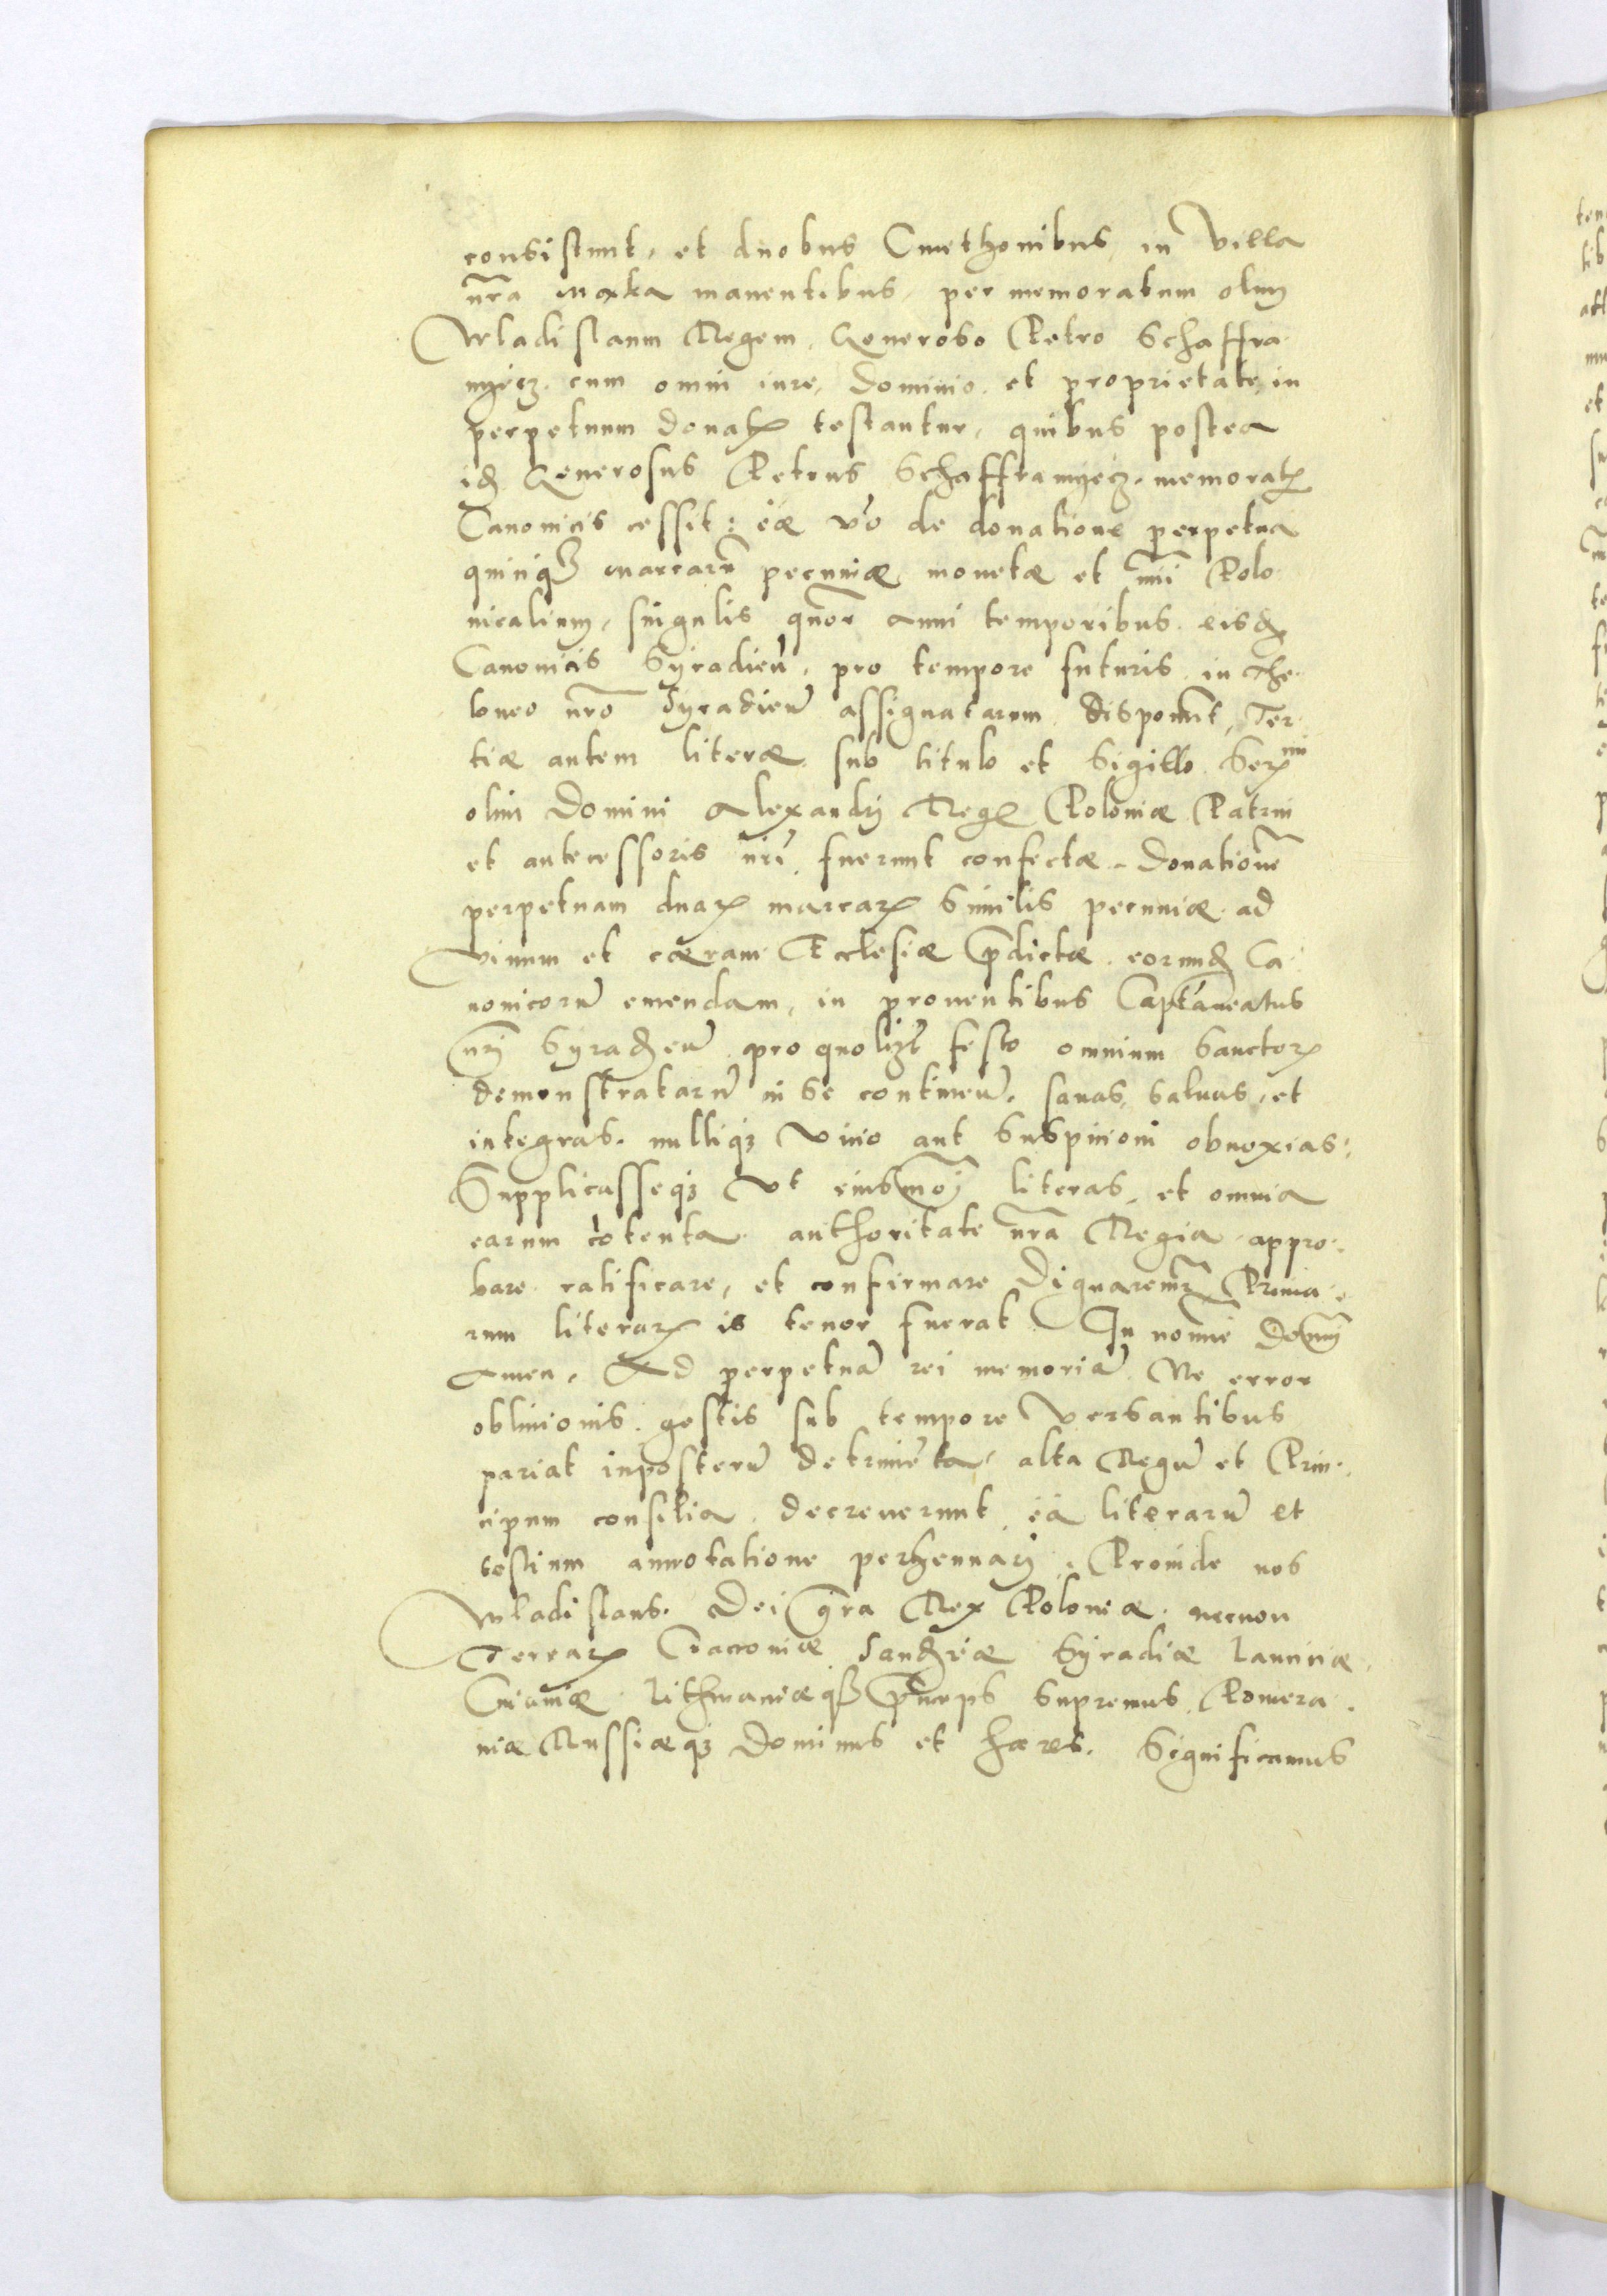 consistunt, et duobus Cmethonibus, in Villa
nr̃a Maxka manentibus, per memoratum olim
Wladislaum Regem, Generoso Petro Schaffra
nyecz. cum omni iure, Dominio et proprietate, in
perpetuum donatꝝ testantur, quibus postea
idẽ Generosus Petrus Schaffranyecz, memoratꝝ
Canonicis cessit: eæ vº de donatione perpetua
quinqꝫ marcarũ pecuniæ, monetæ et nũi Polo
nicalium, singulis quor anni temporibus eisdẽ
Canonicis Syradieñ, pro tempore futuris in The
loneo nrõ Syradieñ assignatarum disponunt, Ter
tiæ autem literæ sub titulo et Sigillo Serꝫmi
olim Domini Alexandri Regꝭ Poloniæ Patrui
et antecessoris nrĩ, fuerunt confectæ. Donationẽ
perpetuam duarꝝ marcarꝝ similis pecuniæ ad
Vinum et cæram Ecclesiæ p̃dictæ, eorundẽ Ca
nonicorũ emendam, in prouentibus Captaneatus
nrĩ Syradieñ, pro quolibet festo omnium Sanctorꝝ
demonstratarũ in se contineñ. sanas, saluas, et
integras. nulliqꝫ Vitio aut Suspicioni obnoxias:
Supplicasseqꝫ Vt eiusmoĩ literas, et omnia
earum cõtenta authoritate nr̃a Regia appro.
bare ratificare, et confirmare Dignaremur. Prima
rum literarꝝ is tenor fuerat. In nomĩe Domĩ
Amen. Ad perpetuã rei memoriã. Ne error
obliuionis gestis sub tempore Versantibus
pariat inposterũ detrimẽta, alta Regũ et Prin.
cipum consilia decreuerunt ea literarũ et
testium annotatione perhennari. Proinde nos
Wladislaus. Dei gr̃a Rex Poloniæ. necnon
Terrarꝝ Cracouiæ Sandoĩæ Syradiæ Lanciciæ
Cuiauiæ Lithuaniæqꝫ Pr̃inceps Supremus, Pomera.
niæ Russiæqꝫ Dominus et hæres. Significamus